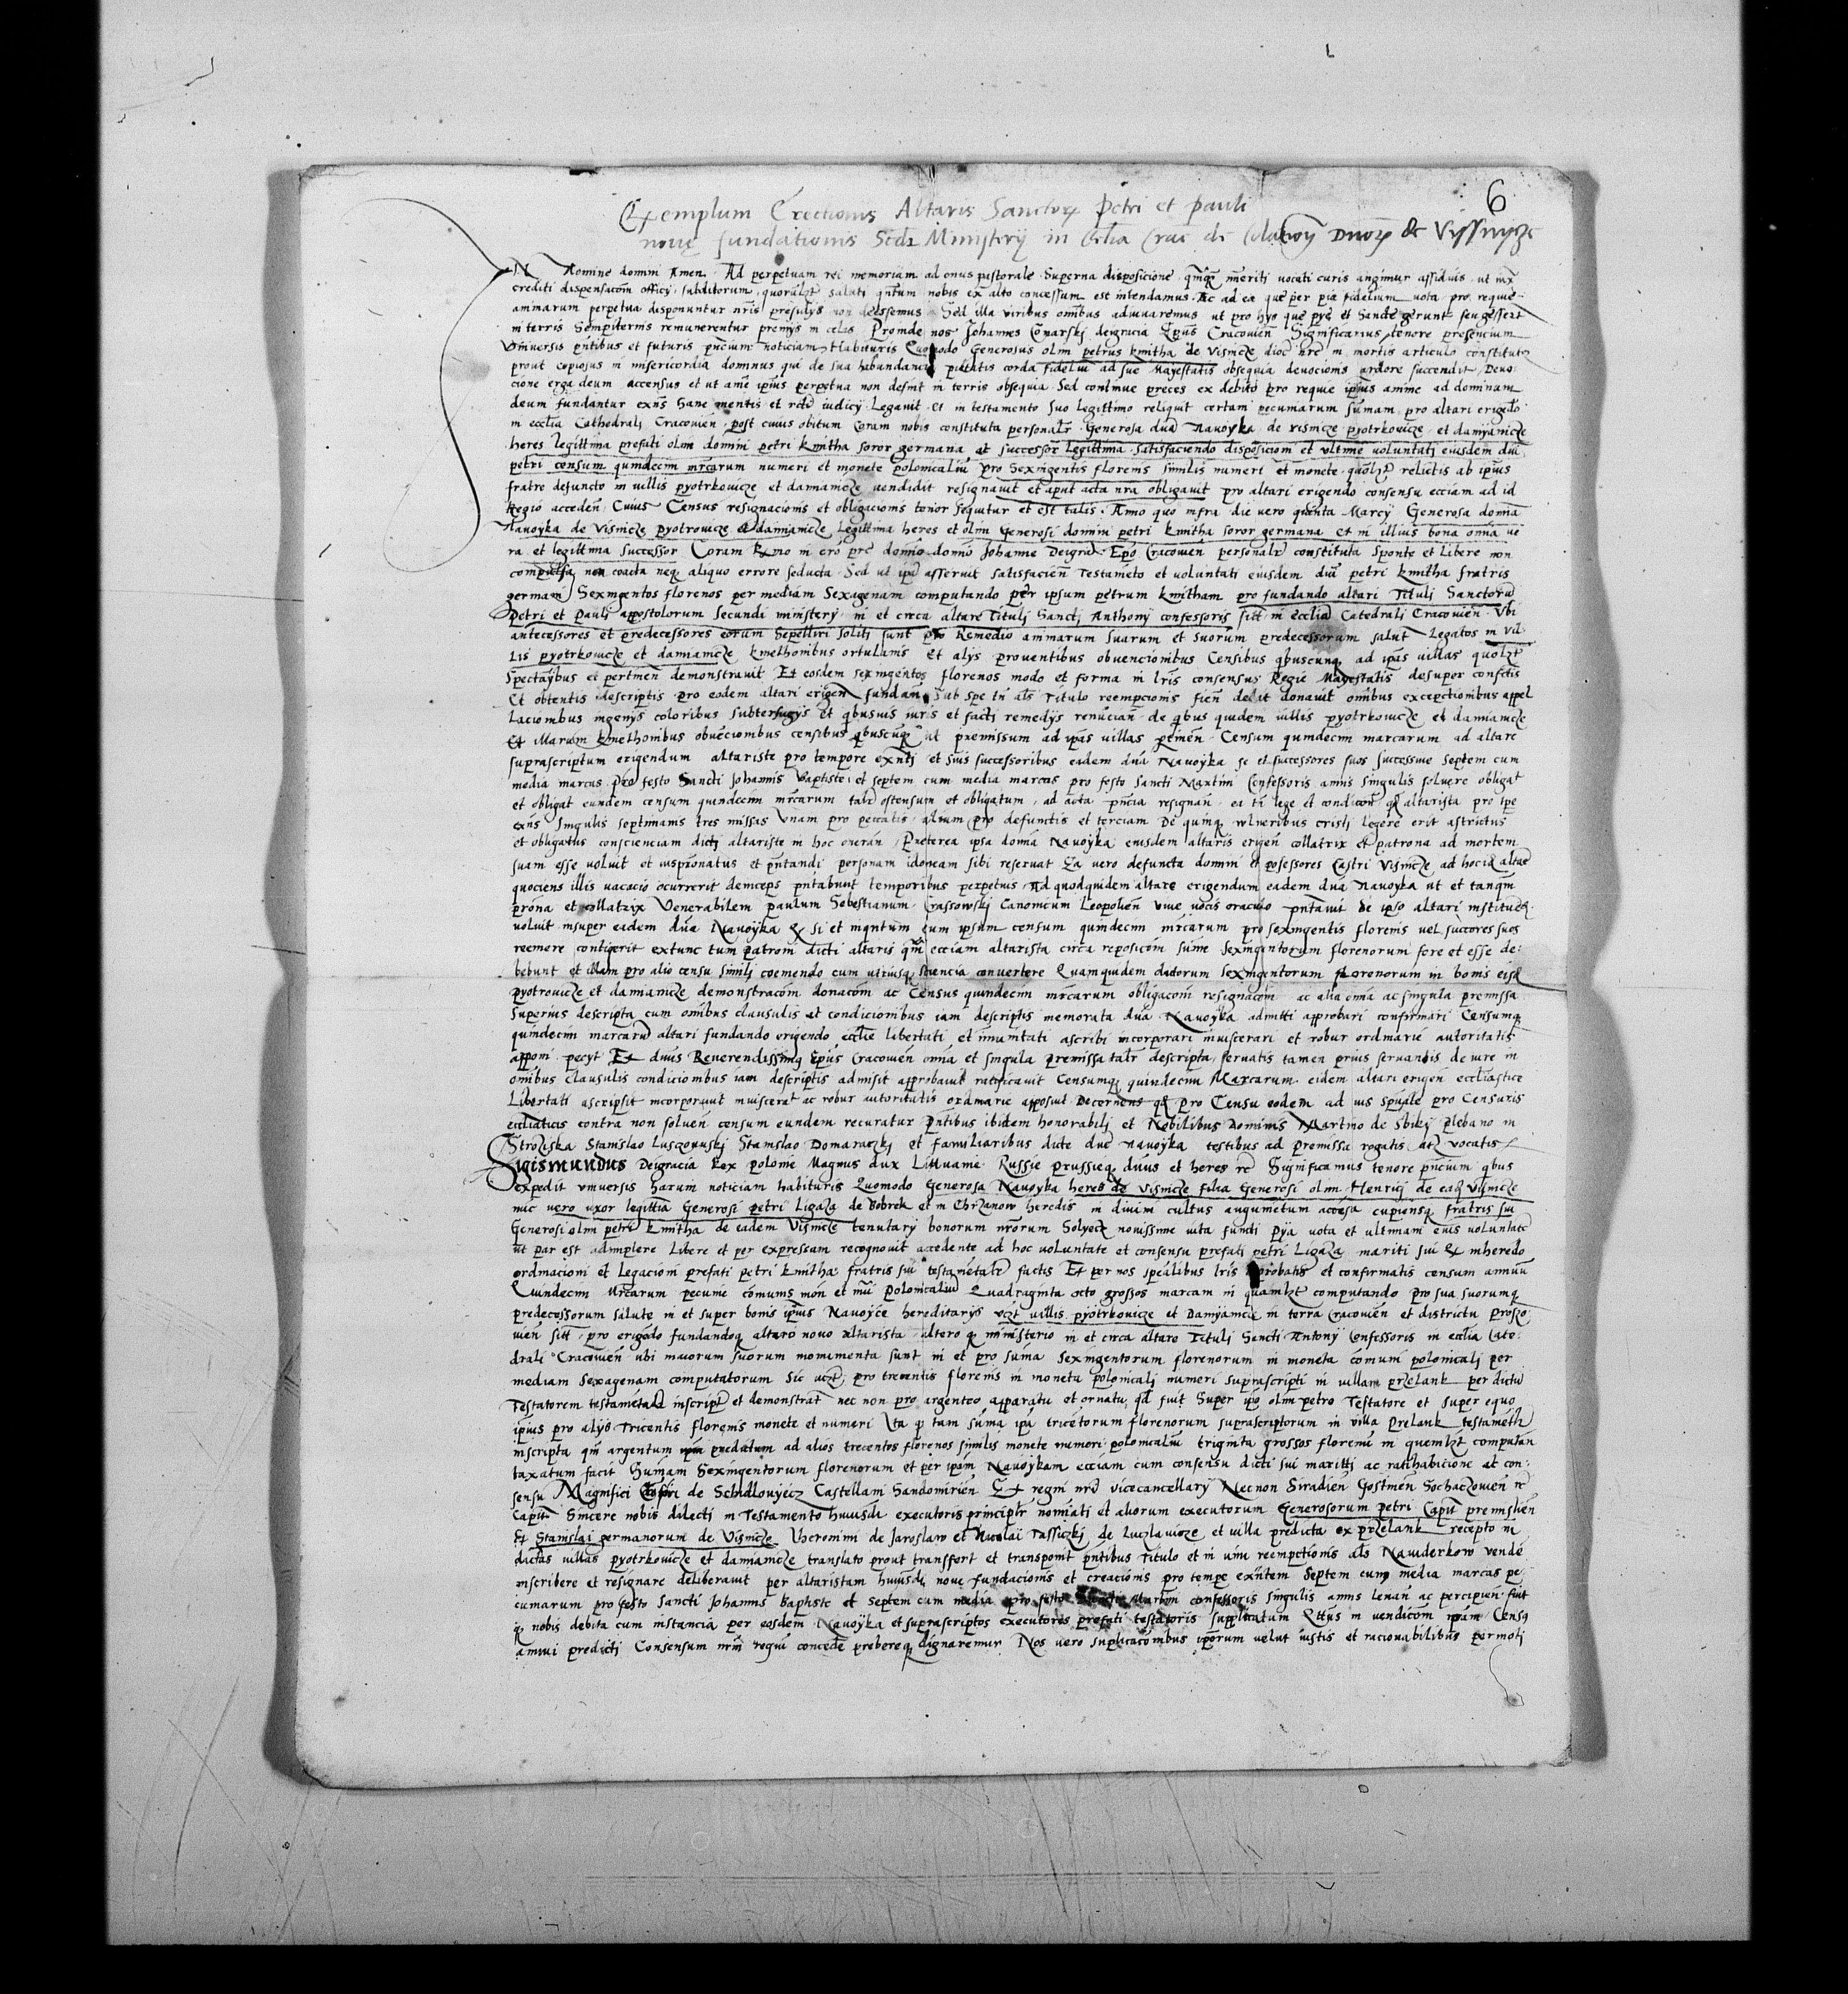 6
Exemplum Erectionis Altaris Sanctorum Petri et Pauli
nove fundationis Secdi Ministerij in Ecclia Crac de Collacioe Dnorum de Vissnycze
IN Nomine domini Amen Ad perpetuam rei memoriam ad onus pastorale Superna disposicione qmqz immeriti vocati curis angimur assiduis ut iux
crediti dispensacom officij subditorum quorulzt saluti qntum nobis ex alto concessum est intendamus Ac ad ea que per pia fidelium vota pro requie
animarum perpetua disponuntur nris presulys non deessemus Sed illa viribus omibus adiuvaremus ut pro hys que pye et Sancte gerunt seu gessert
in terris Sempiternis remunerentur premys in celis Proinde nos Johannes Conarskj deigracia Epus Cracovien Significamus tenore presencium
Universis pntibus et futuris pncium noticiam Habituris Quomodo Generosus olim petrus kmitha de Visnicze dioc nre in mortis articulo constitutz
prout copiosus in misericordia dominus qui de sua habundancia pietatis corda fideliu ad sue Mayestatis obsequia devocionis ardore succendit Devo
cione erga deum accensus et ut aime ipius perpetua non desint in terris obsequia Sed continue preces ex debito pro requie ipius anime ad dominum
deum fundantur exns Sane mentis et recti iudicij Legavit et in testamento suo legittimo reliquit certam pecuniarum sumam pro altari erigedo
in ecclia Cathedralj Cracovien post cuius obitum Coram nobis constituta personalr Generosa dna Navoyka de visnicze pyotrkovicze et damyanicze
heres legittima prefati olim domini petri kmitha soror germana et successor legittima satisfaciendo disposiciom et ultime voluntati eiusdem dni
petri censum quindecim mrcarum numeri et monete polonicaliu pro Sexingentis florenis similis numeri et monete quolzt relictis ab ipius
fratre defuncto in villis pyotrkovicze et damianicze vendidit resignavit et aput acta nra obligavit pro altari erigendo consensu ecciam ad id
Regio acceden Cuius Census resignacionis et obligacionis tenor sequitur et est talis Anno quo infra die vero quinta Marcij Generosa domina
Navoyka de Visnicze pyotrovicze et damianicze Legittima heres et olim Generosi domini petri kmitha soror germana et in illius bona omia ve
ra et legittima successor Coram Rmo in cro pre domino domino Johanne Deigra Epo Cracovien personalr constituta sponte et Libere non
compulsa non coacta neqz aliquo errore seducta Sed ut ipa asseruit satisfacien Testameto et voluntati eiusdem dni petri kmitha fratris
germani Sexingentos florenos per mediam Sexagenam computando per ipsum petrum kmitham pro fundando altari Titulj Sanctoru
Petri et Pauli appostolorum Secundi ministerij in et circa altare Titulj Sanctj Anthonij confessoris sitt in ecclia Catedrali Cracovien Ubi
antecessores et predecessores eorum Sepelliri solitj sunt pro Remedio animarum Suarum et Suorum predecessorum salut Legatos in vil
lis pyotrkovicze et damianicze kmethonibus ortulanis et alys proventibus obvencionibus Censibus qbuscunqz ad ipas villas quolzt
spectantibus et pertinen demonstravit Et eosdem sexingentos florenos modo et forma in lris consensus Regie Mayestatis desuper confectis
Et obtentis descriptis pro eodem altari erigen fundan sub spe tn als Titulo reempcionis fien dedit donavit omibus excepctionibus appel
lacionibus ingenys coloribus subterfugys et qbusvis iuris et factj remedys renuncian de qbus quidem villis pyotrkovicze et damianicze
Et illarum kmethonibus obvecionibus censibus qbuscuqz ut premissum ad ipas villas ptinen Censum quindecim marcarum ad altare
suprascriptum erigendum altariste pro tempore exntj et suis successoribus eadem dna Navoyka se et successores suos successive septem cum
media marcas pro festo Sancti Johannis Baptiste et septem cum media marcas pro festo Sancti Martini Confessoris annis singulis solvere obligat
et obligat eundem censum quindecim mrcarum talr ostensum et obligatum ad acta pncia resignan ea tn lege et condicon qd altarista pro tpe
exns singulis septimanis tres missas Unam pro peccatis aliam pro defunctis et terciam De quinqz vulneribus cristj legere erit astrictus
et obligatus conscienciam dictj altariste in hoc oneran Preterea ipsa domina Navoyka eiusdem altaris erigen collatrix et patrona ad mortem
suam esse voluit et iuspronatus et pntandi personam idoneam sibi reservat Ea vero defuncta domini et posessores Castri Visnicze ad hocidz altare
quociens illis vacacio ocurrerit deinceps pntabunt temporibus perpetuis Ad quodquidem altare erigendum eadem dna Navoyka ut et tanqm
prona et collatrix Venerabilem paulum Sebestianum Crassowskj Canonicum Leopolien vive vocis oraculo pntavit de ipso altari instituedz
voluit insuper eadem dna Navoyka qd si et inqntum eum ipsum censum quindecim mrcarum pro sexingentis florenis vel succores suos
reemere contigerit extunc tum patroni dicti altaris qm ecciam altarista circa reposicom sume Sexingentorum florenorum fore et esse de
bebunt et illam pro alio censu similj coemendo cum utriusqz sciencia convertere Quamquidem dictorum sexingentorum florenorum in bonis eisdz
pyotrovicze et damianicze demonstracom donacom ac Census quindecim mrcarum obligacom resignacom ac alia omia ac singula premissa
superius descripta cum omibus clausulis et condicionibus iam descriptis memorata dna Navoyka admitti approbari confirmari Censumqz
quindecim marcaru altari fundando erigendo ecclie libertati et imunitati ascribi incorporari inviscerari et robur ordinarie autoritatis
apponi pecyt Et dnus Reverendissimq Epus Cracovien omia et singula premissa talr descripta servatis tamen prius servandis de iure in
omibus clausulis condicionibus iam descriptis admisit approbavit ratificavit Censumqz quindecim Marcarum eidem altari erigen eccliastice
Libertati ascripsit incorporavit inviscerat ac robur autoritatis ordinarie apposuit Decernens qd pro Censu eodem ad ius spuale pro Censuris
eccliaticis contra non solven censum eundem recuratur Pntibus ibidem honorabilj et Nobilibus Dominis Martino de Sbikj plebano in
Stroziska Stanislao Lusczowskj Stanislao Domaraczkj et familiaribus dicte dne Navoyka testibus ad premissa rogatis atqz vocatis
Sigismundus Deigracia Rex polonie Magnus dux Littuanie Russie prussieqz dnus et heres rc Significamus tenore pncium qbus
expedit universis harum noticiam habituris Quomodo Generosa Navoyka heres de Visnicze filia Generosi olim Henrici de eadz visnicze
nuc vero uxor legittia Generosi petri Ligaza de Bobrek et in Chrzanow heredis in divini cultus augumetum accesa cupiensqz fratris sui
Generosi olim petri kmitha de eadem Visnicze tenutary bonorum nrorum Solyecz novissime vita functi pya vota et ultimam eius voluntate
ut par est adimplere Libere et per expressam recognovit accedente ad hoc voluntate et consensu prefati petri Ligaza mariti sui et inheredo
ordinacioni et Legacioni prefati petri kmitha fratris sui testametalr factis Et per nos specialibus lris approbatis et confirmatis censum annuu
Quindecim Mrcarum pecunie comunis mon et nui polonicaliu Quadraginta octo grossos marcam in quamlzt computando pro sua suorumqz
predecessorum salute in et super bonis ipius Navoyce hereditarys vczt villis pyotrkovicze et Damyanicze in terra Cracovien et districtu proszo
vien sitt pro erigedo fundandoqz altari novo altarista altero qz ministerio in et circa altare Titulj Sancti Antonij Confessoris in ecclia Cate
drali Cracovien ubi maiorum suorum monimenta sunt in et pro suma Sexingentorum florenorum in moneta comuni polonicalj per
mediam Sexagenam computatorum Sic uczt pro trecentis florenis in moneta polonicalj numeri suprascripti in villam przelank per dictu
Testatorem testametalr inscript et demonstrat nec non pro argenteo apparatu et ornatu qd fuit Super ipo olim petro Testatore et super equo
ipius pro alys Tricentis florenis monete et numeri Ita qd tam suma ipa tricetorum florenorum suprascriptorum in villa Prelank testametlr
inscripta qm argentum ipm predictum ad alios trecentos florenos similis monete numeri polonicaliu triginta grossos florenu in quemlzt computan
taxatum facit Sumam Sexingentorum florenorum et per ipam Navoykam ecciam cum consensu dicti sui maritti ac ratihabicione et con
sensu Magnifici Cristofori de Schidlovyecz Castellani Sandomirien Et regni nri vicecancellary Necnon Siradien Gostinen Sochaczovien rc
Capit Sincere nobis dilecti in Testamento huiusdi executoris principlr nomiati et aliorum executorum Generosorum petri Capit premislien
Et Stanislai germanorum de Visnicze Iheronimi de Jaroslaw et Nicolai Tassiczkj de Luczlavicze et villa predicta ex przelank recepto in
dictas villas pyotrkovicze et damianicze translato prout transfert et transponit pntibus Titulo et in vim reempctionis als Nawiderkow vende
inscribere et resignare deliberavit per altaristam huiusdi nove fundacionis et creacionis pro tempe exntem Septem cum media marcas pe
cuniarum pro festo Sancti Johannis Baptiste et septem cum media pro festo Sancti Martini confessoris singulis annis levan ac percipien fuit
qz nobis debita cum instancia per eosdem Navoyka et suprascriptos executores prefati testatoris supplicatum Qttus in vendicom ipam Censq
annui predictj Consensum nrm regiu concede prebereqz dignaremur Nos vero suplicacombus iporum velut iustis et racionabilibus permotj